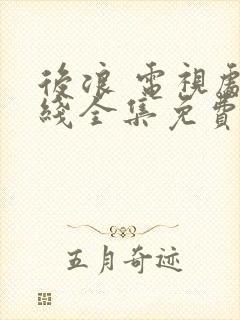 後浪 電視
綫全集免費
五月奇迹